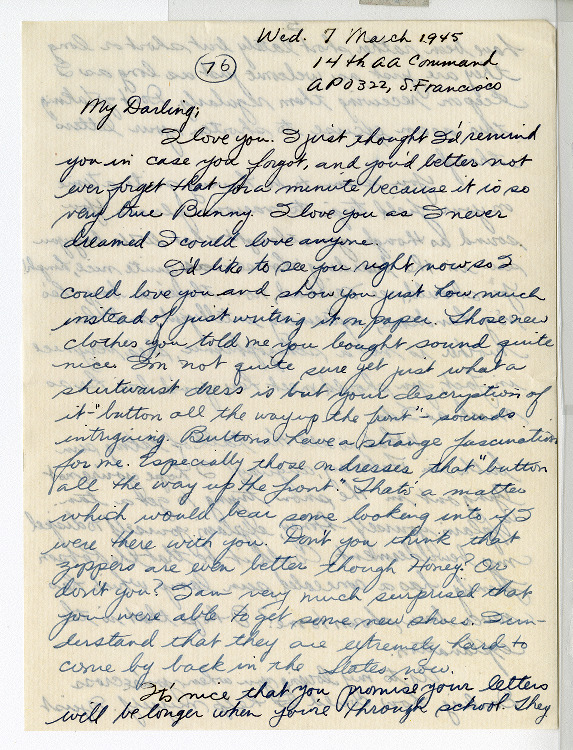 Wed. 7 March 1945
76
14th AA Command
APO 322, S. Francisco
My Darling;
I love you. I just thought I'd remind
you in case you forgot, and you'd better not
ever forget that for a minute because it is so
very true Bunny. I love you as I never
dreamed I could love anyone.
I'd like to see you right now so I
could love you and show you just how much
instead of just writing it on paper. Those new
clothes you told me you bought sound quite
nice. I'm not quite sure yet just what a
shirtwaist dress is but your description of
it - "button all the way up the front" - sounds
intriguing. Buttons have a strange fascination
for me. Especially those on dresses that "button
all the way up the front." That's a matter
which would bear some looking into if I
were there with you. Don't you think that
zippers are even better though Honey? Or
don't you? I am very much surprised that
you were able to get some new shoes. I un-
derstand that they are extremely hard to
come by back in the States now.
It's nice that you promise your letters
will be longer when you're through school. They